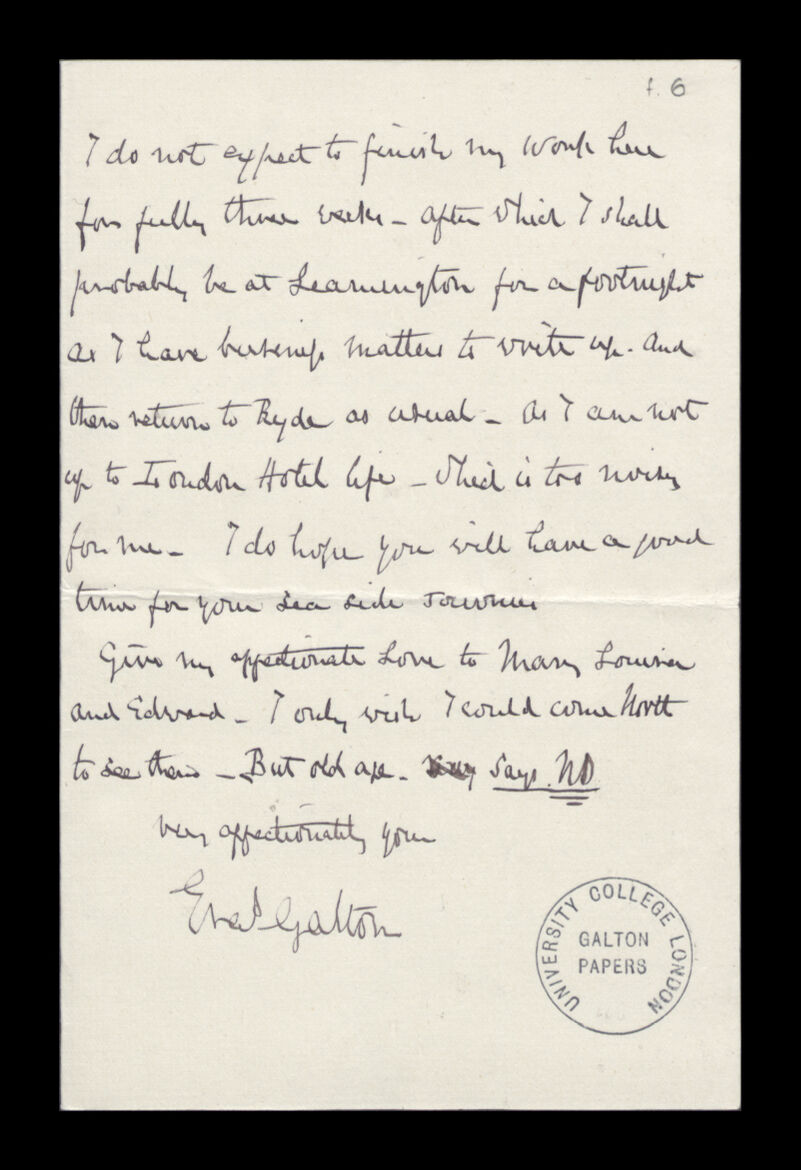 f. 6
I do not expect to finish my work here
for fully three weeks – after which I shall
probably be at Leamington for a fortnight
as I have business matters to write up. and
then return to Ryde as usual – as I am not
up to London Hotel life – which is too noisy
for me – I do hope you will have a good
time for your sea side
Give my affectionate Love to Mary Louisa
and Edward – I only wish I could come North
to see them – But old age – says NO
very affectionately your
Galton
UNIVERSITY COLLEGE LONDON
GALTON
PAPERS